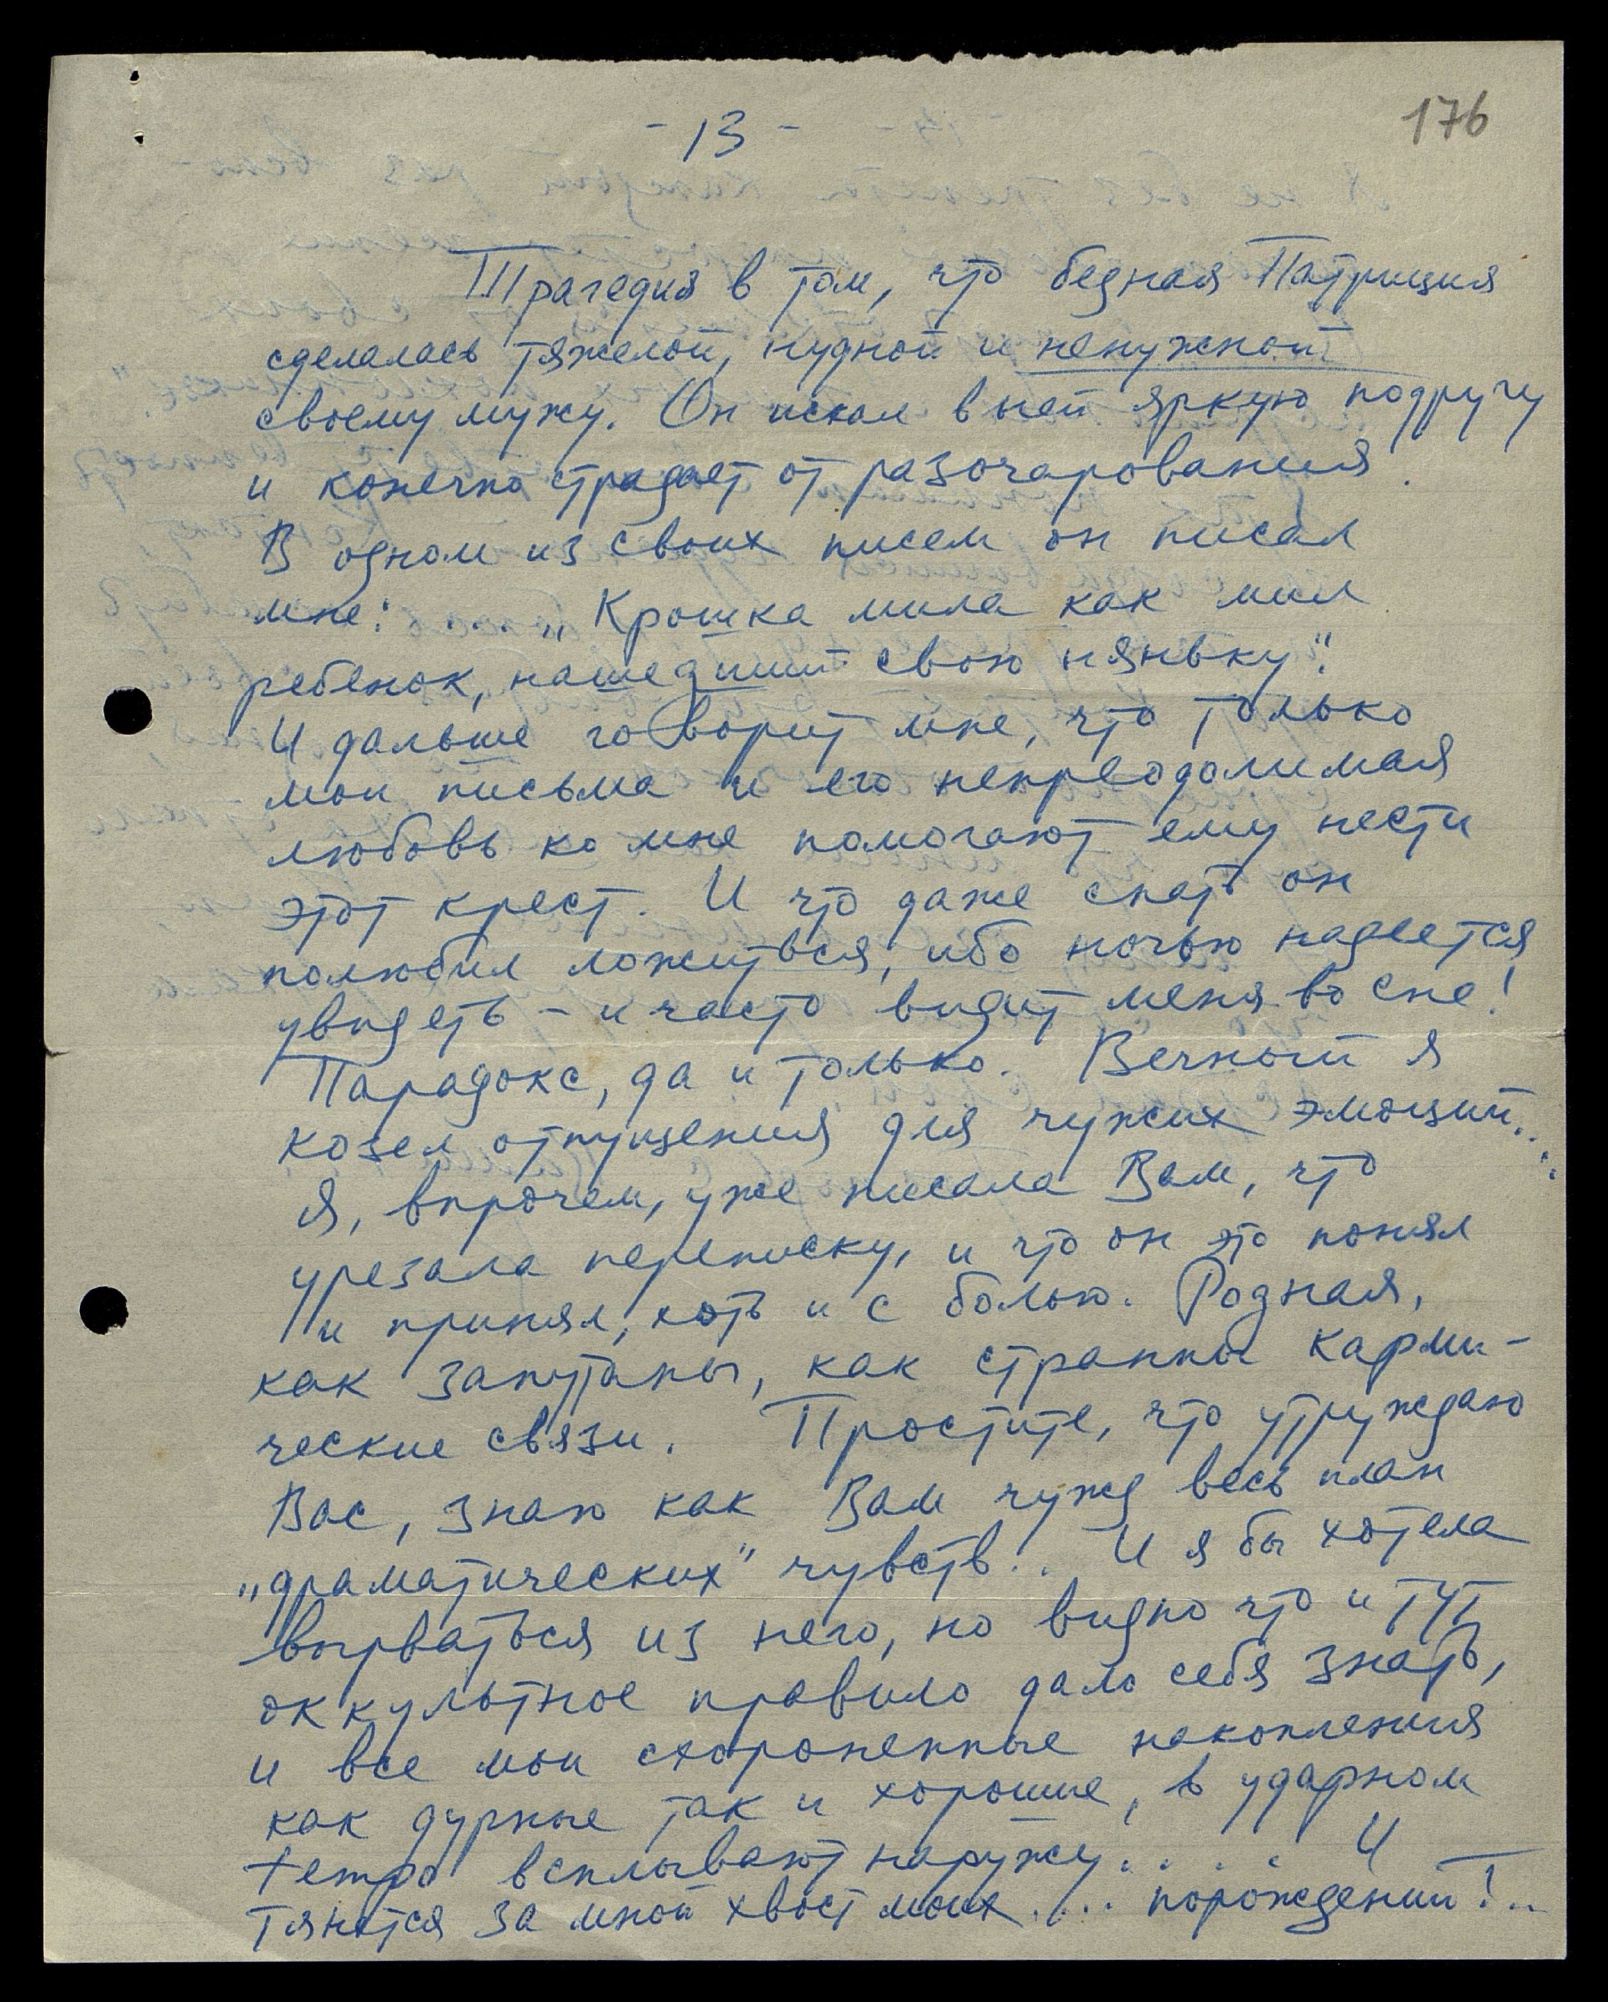 - 13 -
176
Трагедия в том, что бедная Патриция
сделалась тяжелой, нудной и ненужной
своему мужу. Он искал в ней яркую подругу
и конечно страдает от разочарования.
В одном из своих писем он писал
мне: „Крошка мила как мил
ребенок, нашедший свою няньку".
И дальше говорит мне, что только
мои письма и его непреодолимая
любовь ко мне помогают ему нести
этот крест. И что даже спать он
полюбил ложиться, ибо ночью надеется
увидеть - и часто видит меня во сне!
Парадокс, да и только. Вечный я
козел отпущения для чужих эмоций...
Я, впрочем, уже писала Вам, что
урезала переписку, и что он это понял
и принял, хоть и с болью. Родная,
как запутаны, как странны карми-
ческие связи. Простите, что утруждаю
Вас, знаю как Вам чужд весь план
„драматических" чувств!.. И я бы хотела
вырваться из него, но видно что и тут
оккультное правило дало себя знать,
и все мои схороненные накопления
как дурные так и хорошие, в ударном
темпо всплывают наружу..... И
тянется за мной хвост моих.... порождений!..